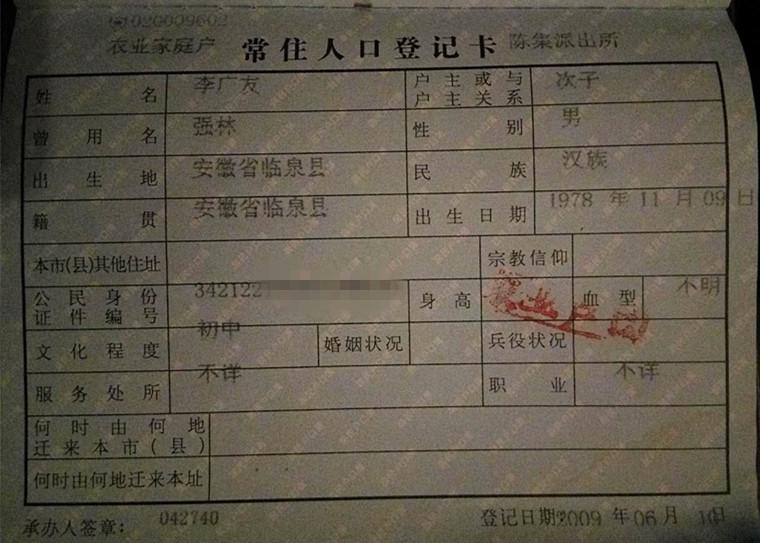 020009602
农业家庭户 常住人口登记卡 陈集派出所
姓名 李广友 户主或与户主关系 次子
曾用名 强林 性别 男
出生地 安徽省临泉县 民族 汉族
籍贯 安徽省临泉县 出生日期 1978 年 11 月 09 日
本市(县)其他住址 宗教信仰
公民身份证件编号 342122 身高 血型 不明
文化程度 初中 婚姻状况 兵役状况
服务处所 不详 职业 不详
何时由何地迁来本市(县)
何时由何地迁来本址
承办人签章: 042740 登记日期:2009 年 06 月 10日